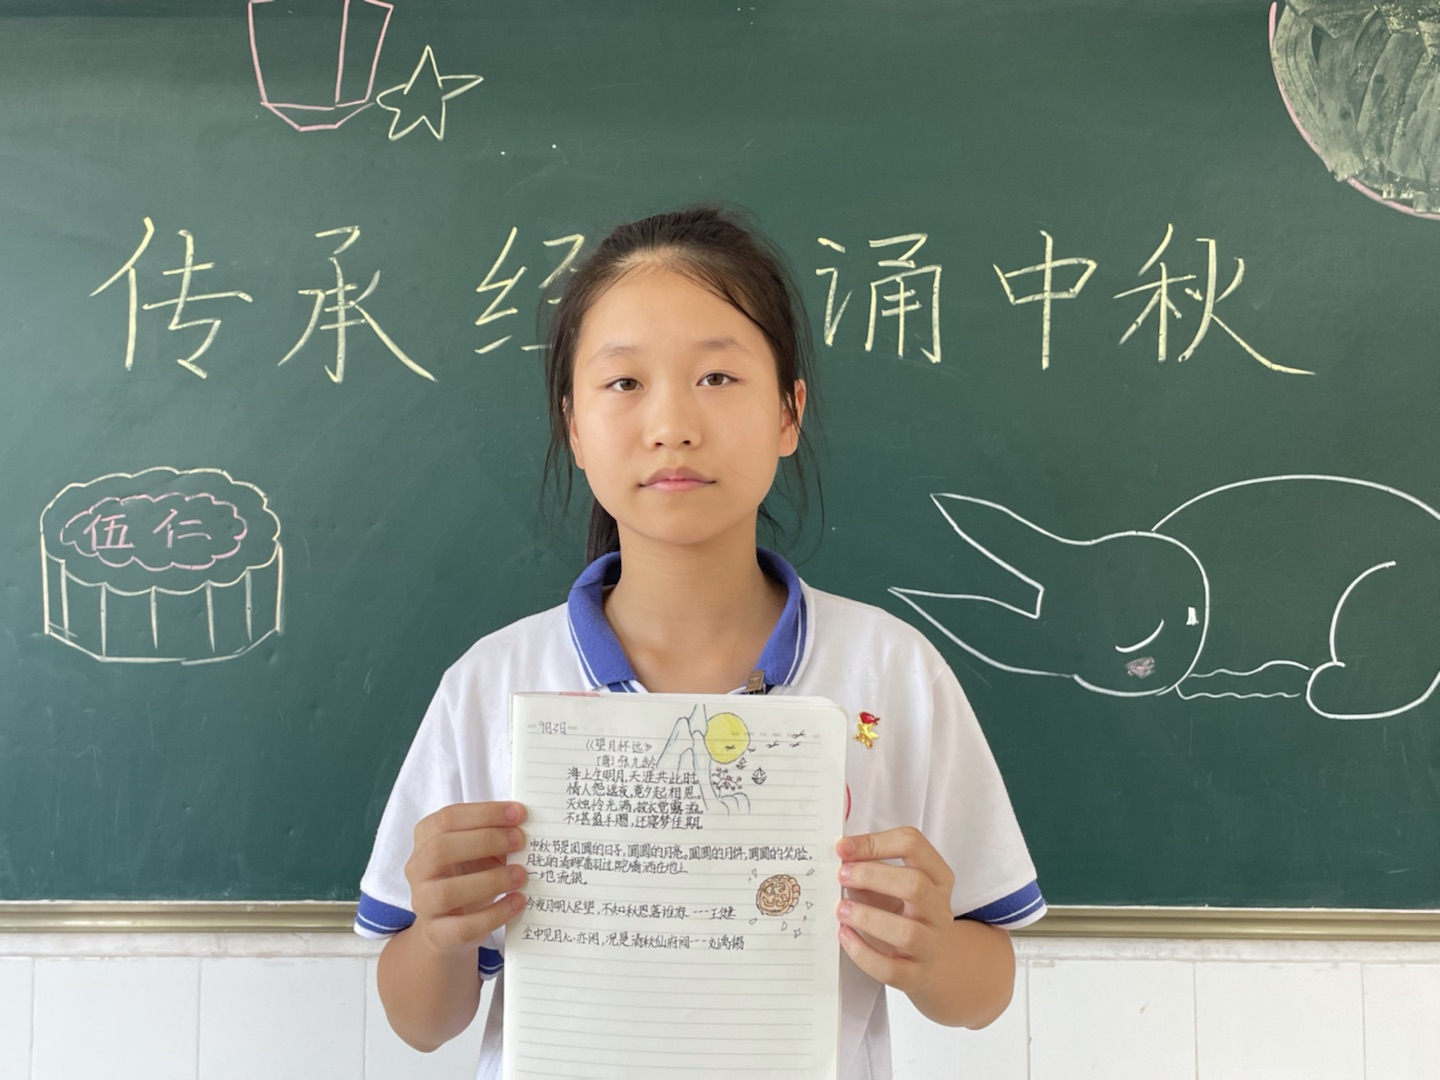 传承经 诵中秋
伍仁
9月3日
《望月怀远》
[唐]张九龄
海上生明月,天涯共此时。
情人怨遥夜,竟夕起相思。
灭烛怜光满,披衣觉露滋。
不堪盈手赠,还寝梦佳期。
中秋节是团圆的日子,圆圆的月亮。圆圆的月饼,圆圆的笑脸,
月光的清辉 过院墙洒在地上
一地流银。
今夜月明人尽望,不知秋思落谁家 ---王健
尘中见月心亦闲,况是清秋仙府间---刘禹锡